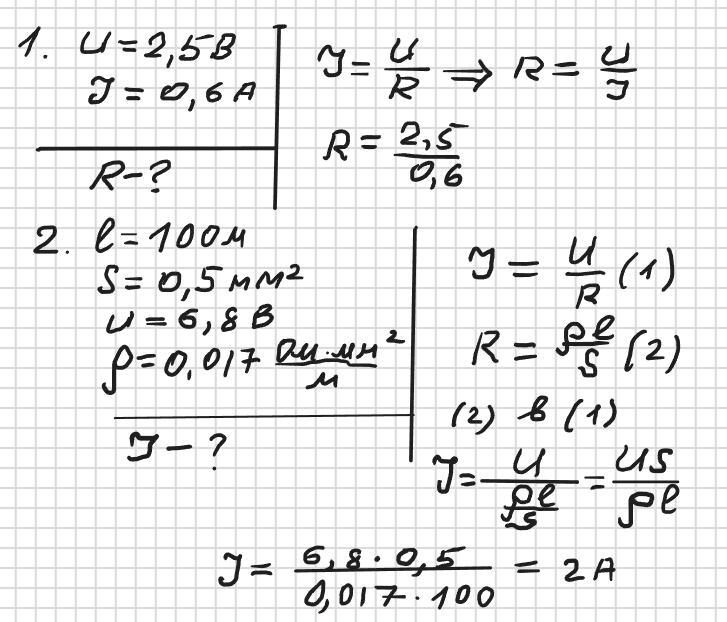 1. U = 2,5 В
I = 0,6 А
R - ?
I = U/R ⇒ R = U/I
R = 2,5/0,6
2. l = 100 м
S = 0,5 мм²
U = 6,8 В
ρ = 0,017 Ом·мм²/м
I - ?
I = U/R (1)
R = ρl/S (2)
(2) в (1)
I = U/(ρl/S) = US/ρl
I = 6,8·0,5/0,017·100 = 2 А